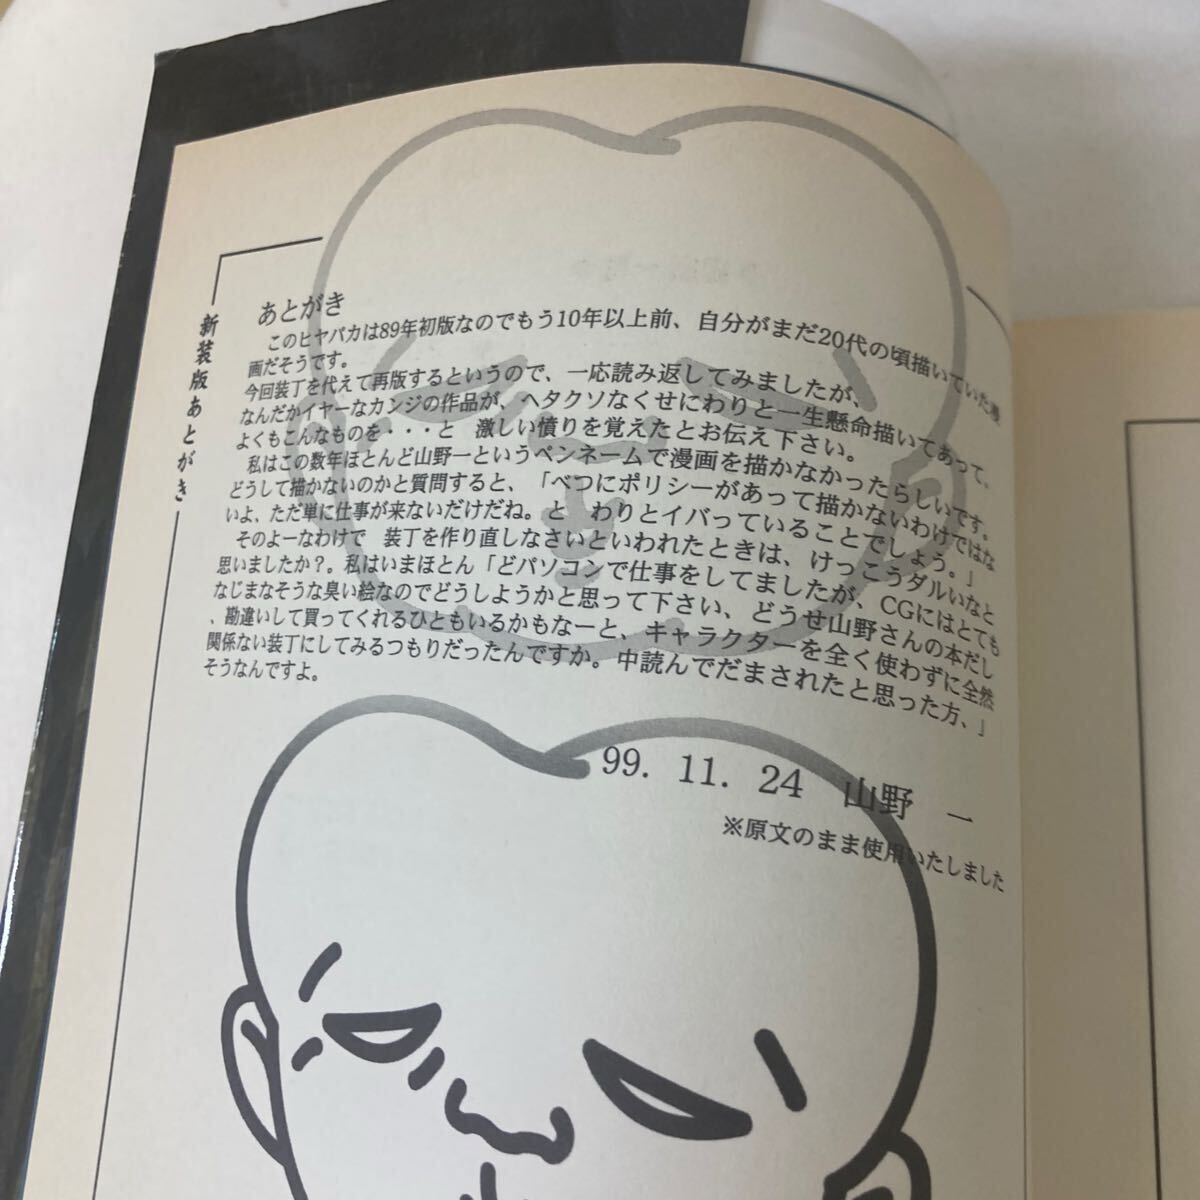 新装版あとがき
あとがき
このヒヤパカは89年初版なのでもう10年以上前、自分がまだ20代の頃描いていた漫
画だそうです。
今回装丁を代えて再版するというので、一応読み返してみましたが、
なんだかイヤーなカンジの作品が、ヘタクソなくせにわりと一生懸命描いてあって、
よくもこんなものを・・・と 激しい憤りを覚えたとお伝え下さい。
私はこの数年ほとんど山野一というペンネームで漫画を描かなかったらしいです。
どうして描かないのかと質問すると、「べつにポリシーがあって描かないわけではな
いよ、ただ単に仕事が来ないだけだね。と わりとイバっていることでしょう。」
そのよーなわけで 装丁を作り直しなさいといわれたときは、けっこうダルいなと
思いましたか？。私はいまほとん「どパソコンで仕事をしてましたが、CGにはとても
なじまなそうな臭い絵なのでどうしようかと思って下さい、どうせ山野さんの本だし
、勘違いして買ってくれるひともいるかもなーと、キャラクターを全く使わずに全然
関係ない装丁にしてみるつもりだったんですか。中読んでだまされたと思った方、」
そうなんですよ。
99. 11. 24 山野 一
※原文のまま使用いたしました